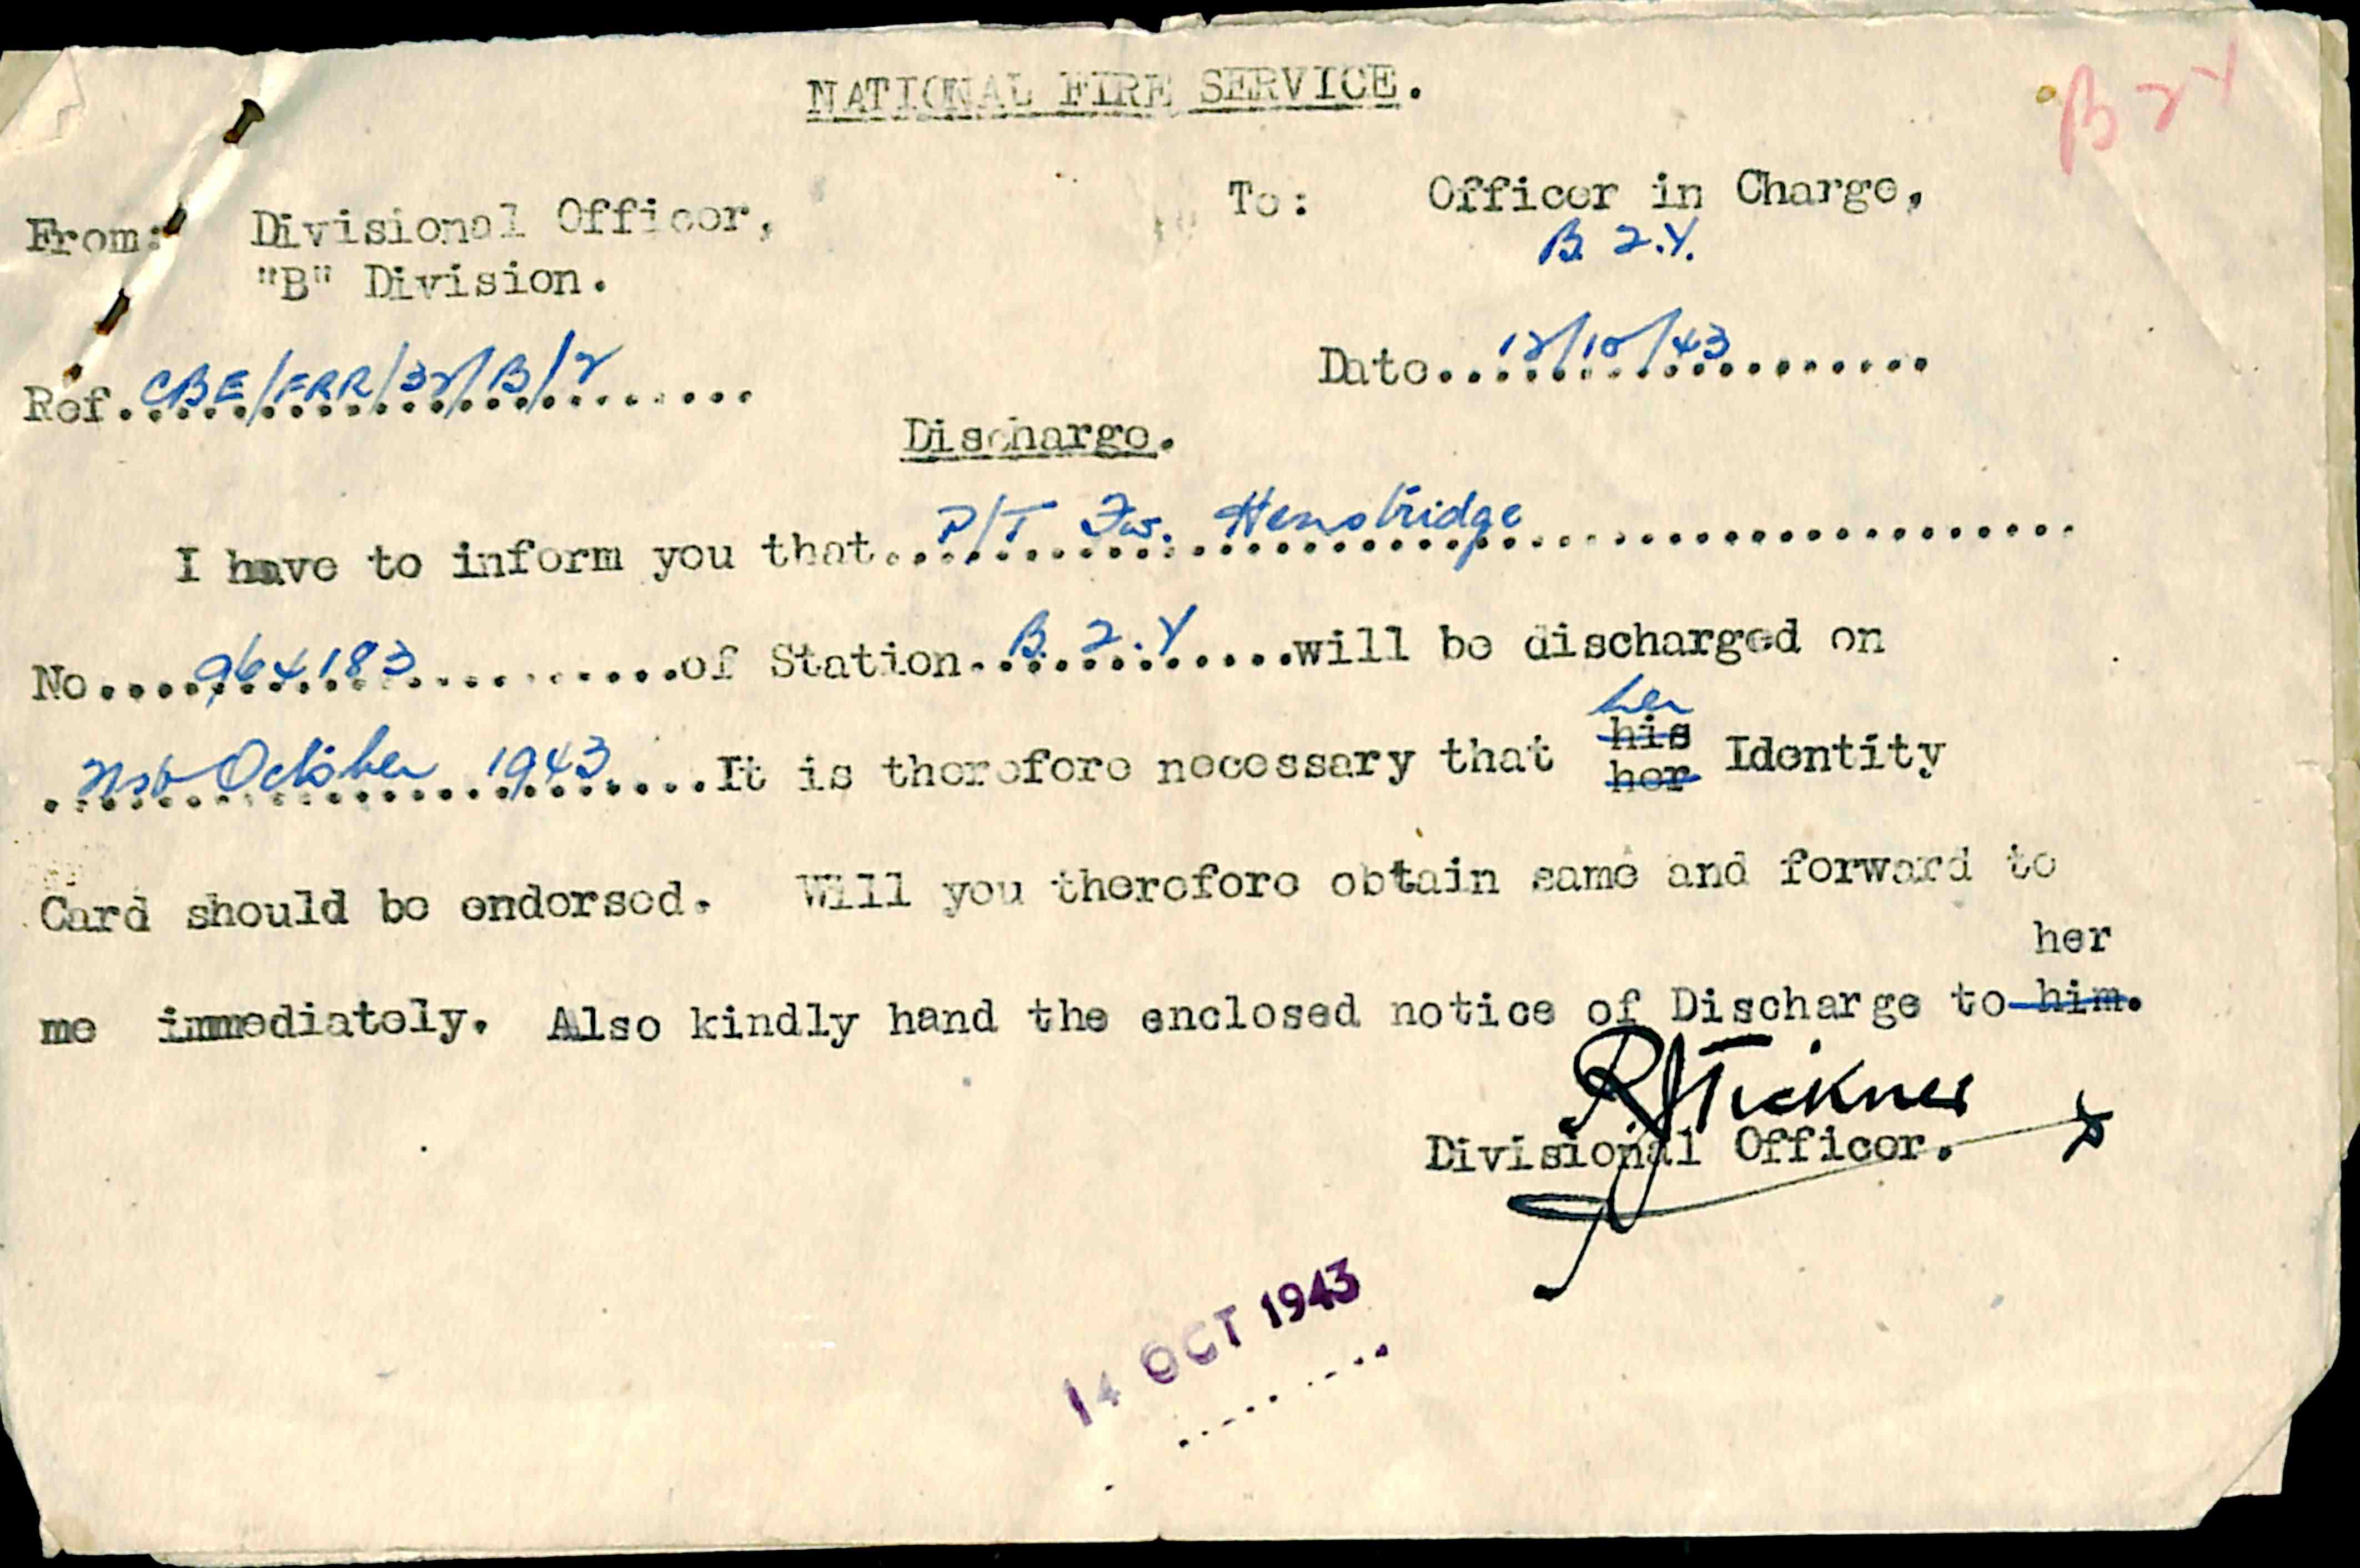 NATIONAL FIRE SERVICE.
B 2 Y
From: Divisional Officer,
"B" Division.
To: Officer in Charge,
B. 2.Y.
Ref. CBE/FRR/32/B/2
Date 12/10/43
Discharge.
I have to inform you that P/T Fw. Henstridge
No 964183 of Station B. 2.Y will be discharged on
her
October 1943 It is therefore necessary that his Identity
her
Card should be endorsed. Will you therefore obtain same and forward to
her
me immediately. Also kindly hand the enclosed notice of Discharge to him.
R J Tickner
Divisional Officer.
14 OCT 1943